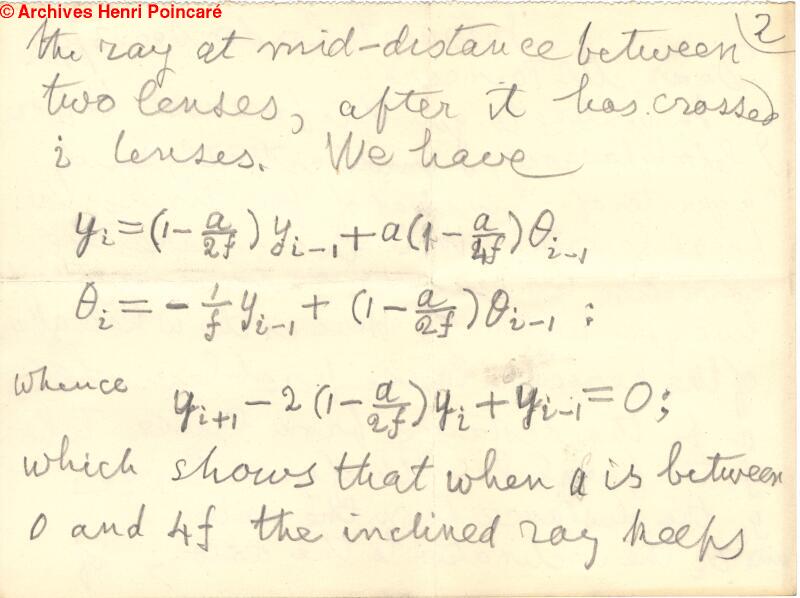 © Archives Henri Poincaré
2
the ray at mid-distance between
two lenses, after it has crossed
i lenses. We have
y_i = (1 - a/2f) y_{i-1} + a(1 - a/4f) θ_{i-1}
θ_i = - 1/f y_{i-1} + (1 - a/2f) θ_{i-1} ;
whence y_{i+1} - 2 (1 - a/2f) y_i + y_{i-1} = 0;
which shows that when a is between
0 and 4f the inclined ray keeps